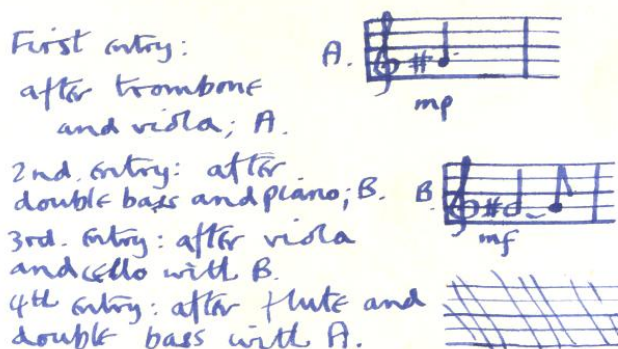 First entry:
after trombone
and viola; A.
A.
mp
2nd. entry: after
double bass and piano; B.
B
mf
3rd. entry: after viola
and cello with B.
4th entry: after flute and
double bass with A.